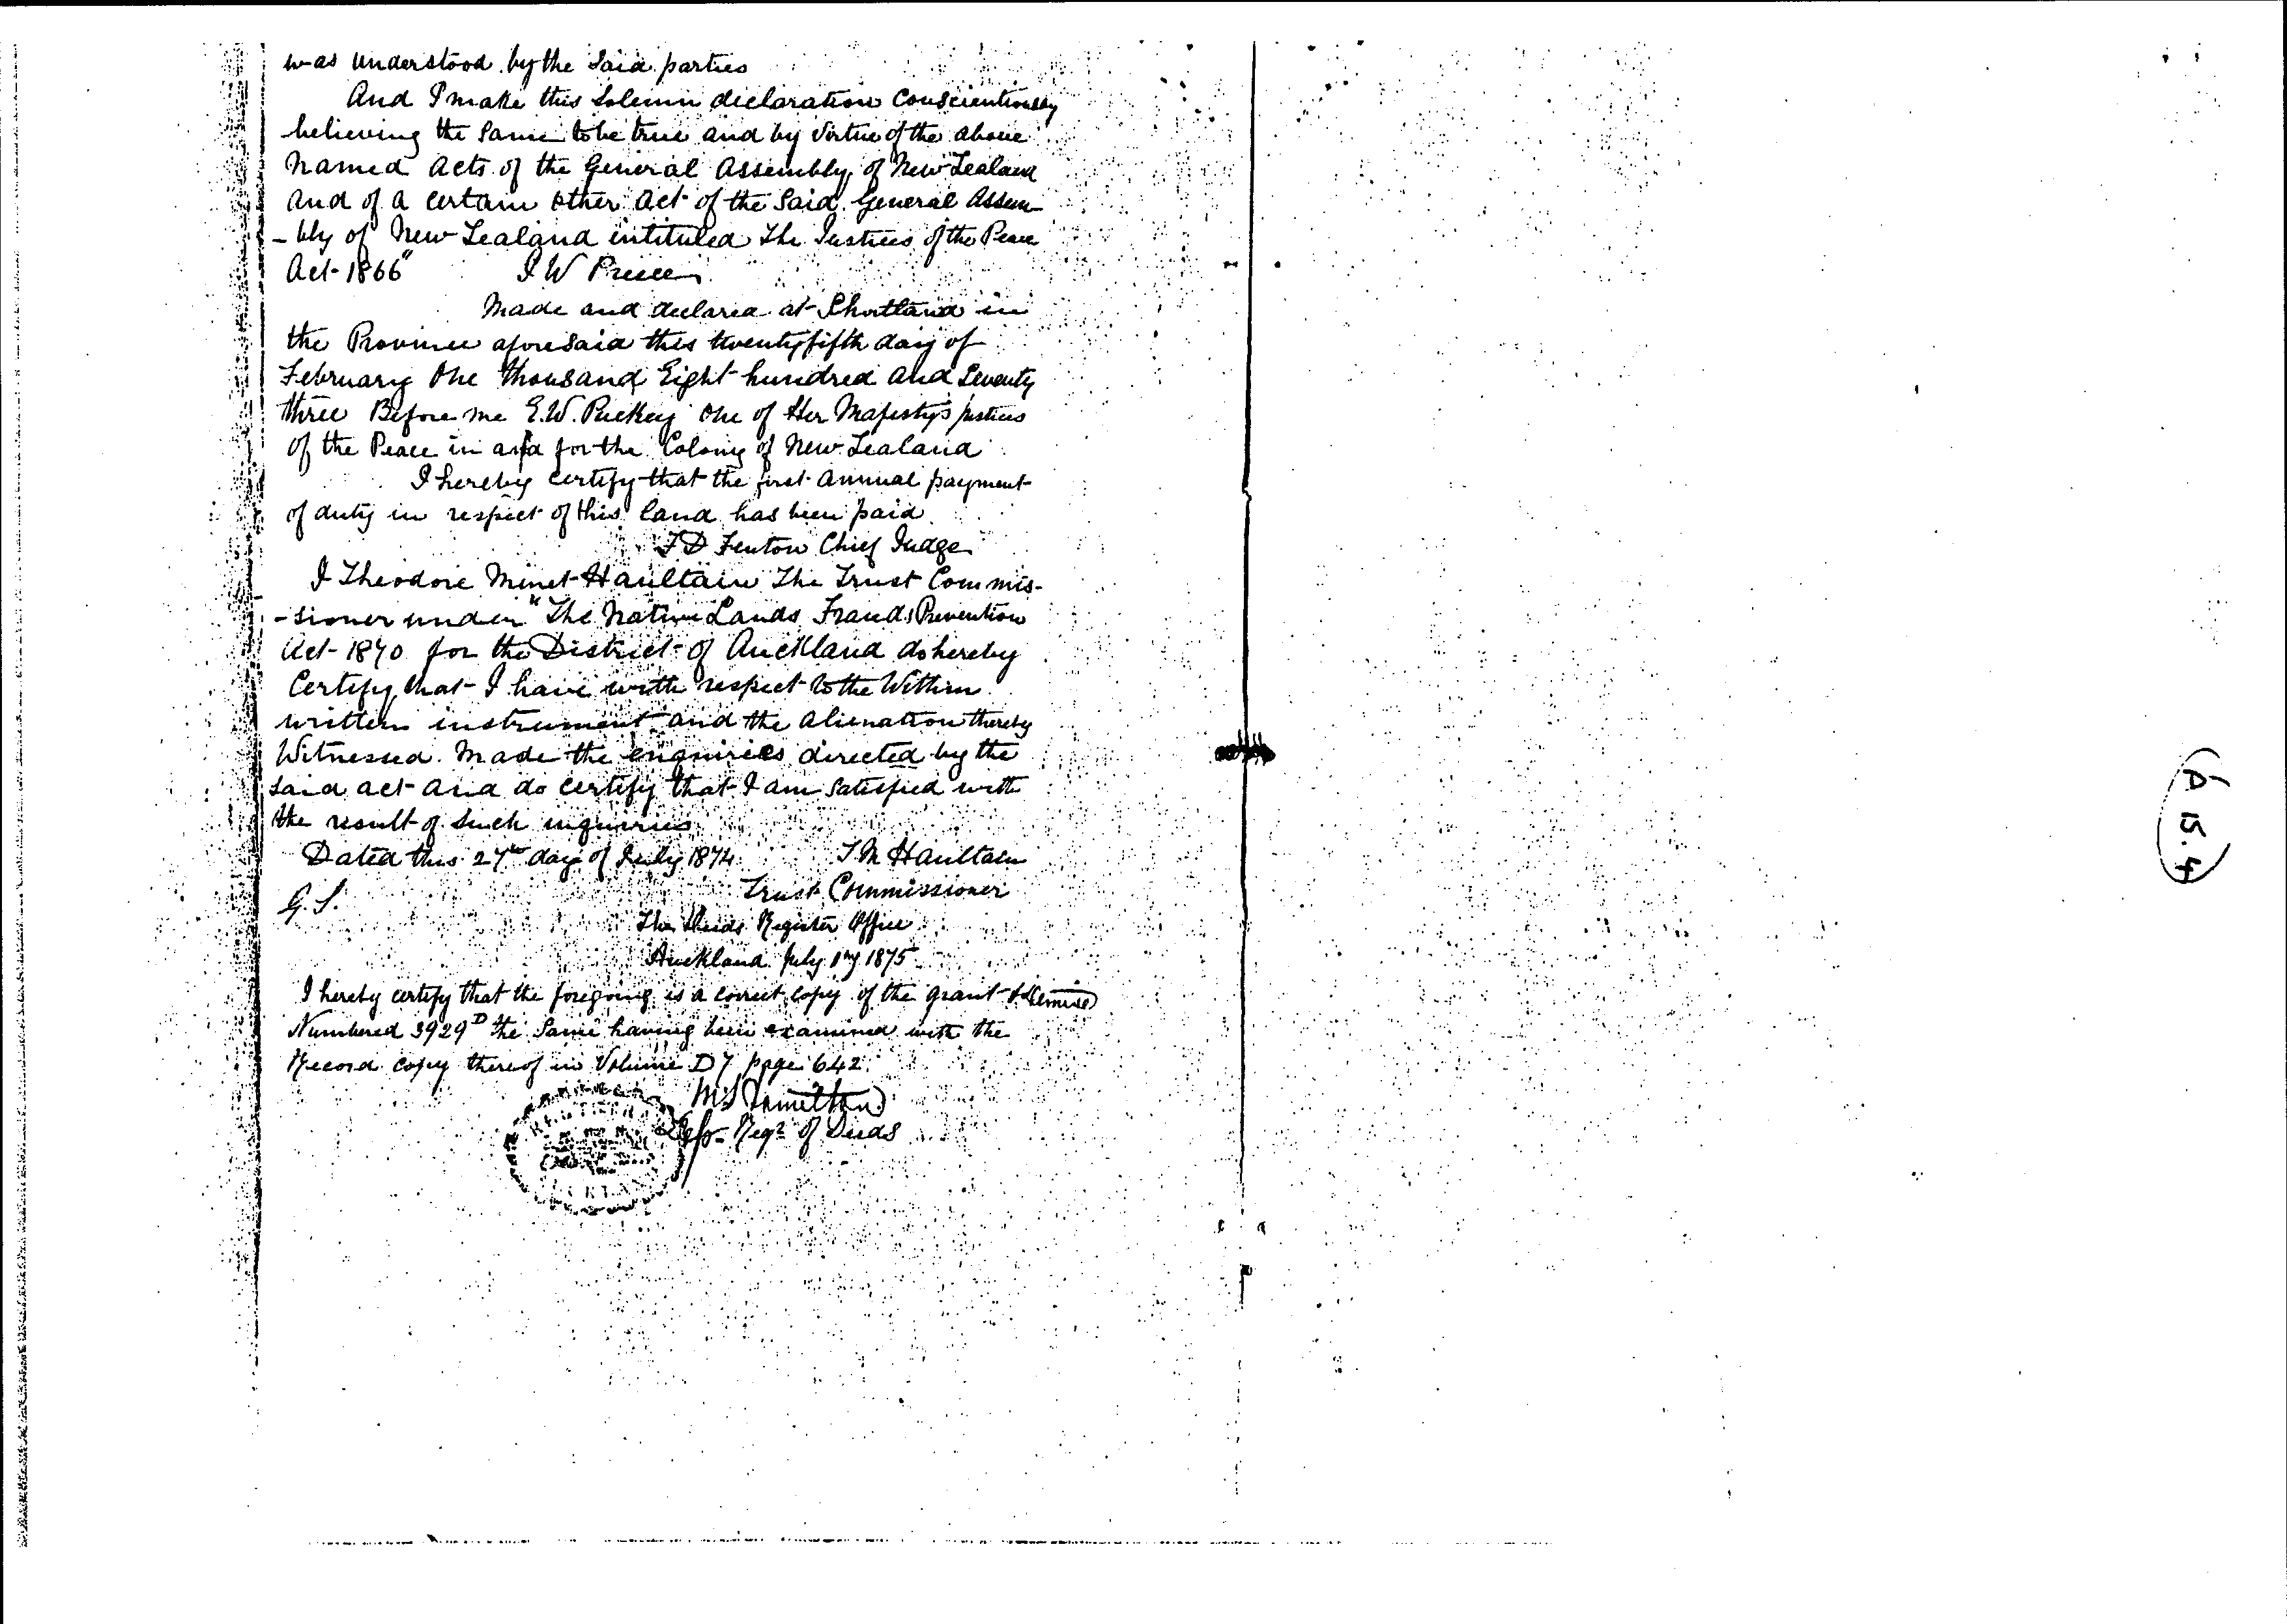 was understood by the said parties
And I make this Solemn declaration Conscientiously
believing the Same to be true and by Virtue of the above
named Acts of the General Assembly of New Zealand
and of a certain other Act of the Said General Assem
-bly of New Zealand intituled The Justices of the Peace
Act 1866" J W Preece
Made and declared at Shortland in
the Province aforesaid this twenty fifth day of
February One thousand Eight hundred and Seventy
three Before me E.W. Puckey One of Her Majesty's justices
of the Peace in and for the Colony of New Zealand
I hereby certify that the first annual payment
of duty in respect of this land has been paid
F D Fenton Chief Judge
I Theodore Minet Haultain The Trust Commis-
-sioner under "The Native Lands Frauds Prevention
Act 1870 for the District of Auckland do hereby
Certify that I have with respect to the Within
written instrument and the alienation thereby
Witnessed made the enquiries directed by the
said act and do certify that I am satisfied with
the result of such inquiries
Dated this 27th day of July 1874 T M Haultain
G. S. Trust Commissioner
The Deeds Register Office
Auckland July 1875
I hereby certify that the foregoing is a correct copy of the grant & demise
Numbered 3929D the Same having been examined with the
Record copy thereof in Volume D7 page 642
Regr of Deeds